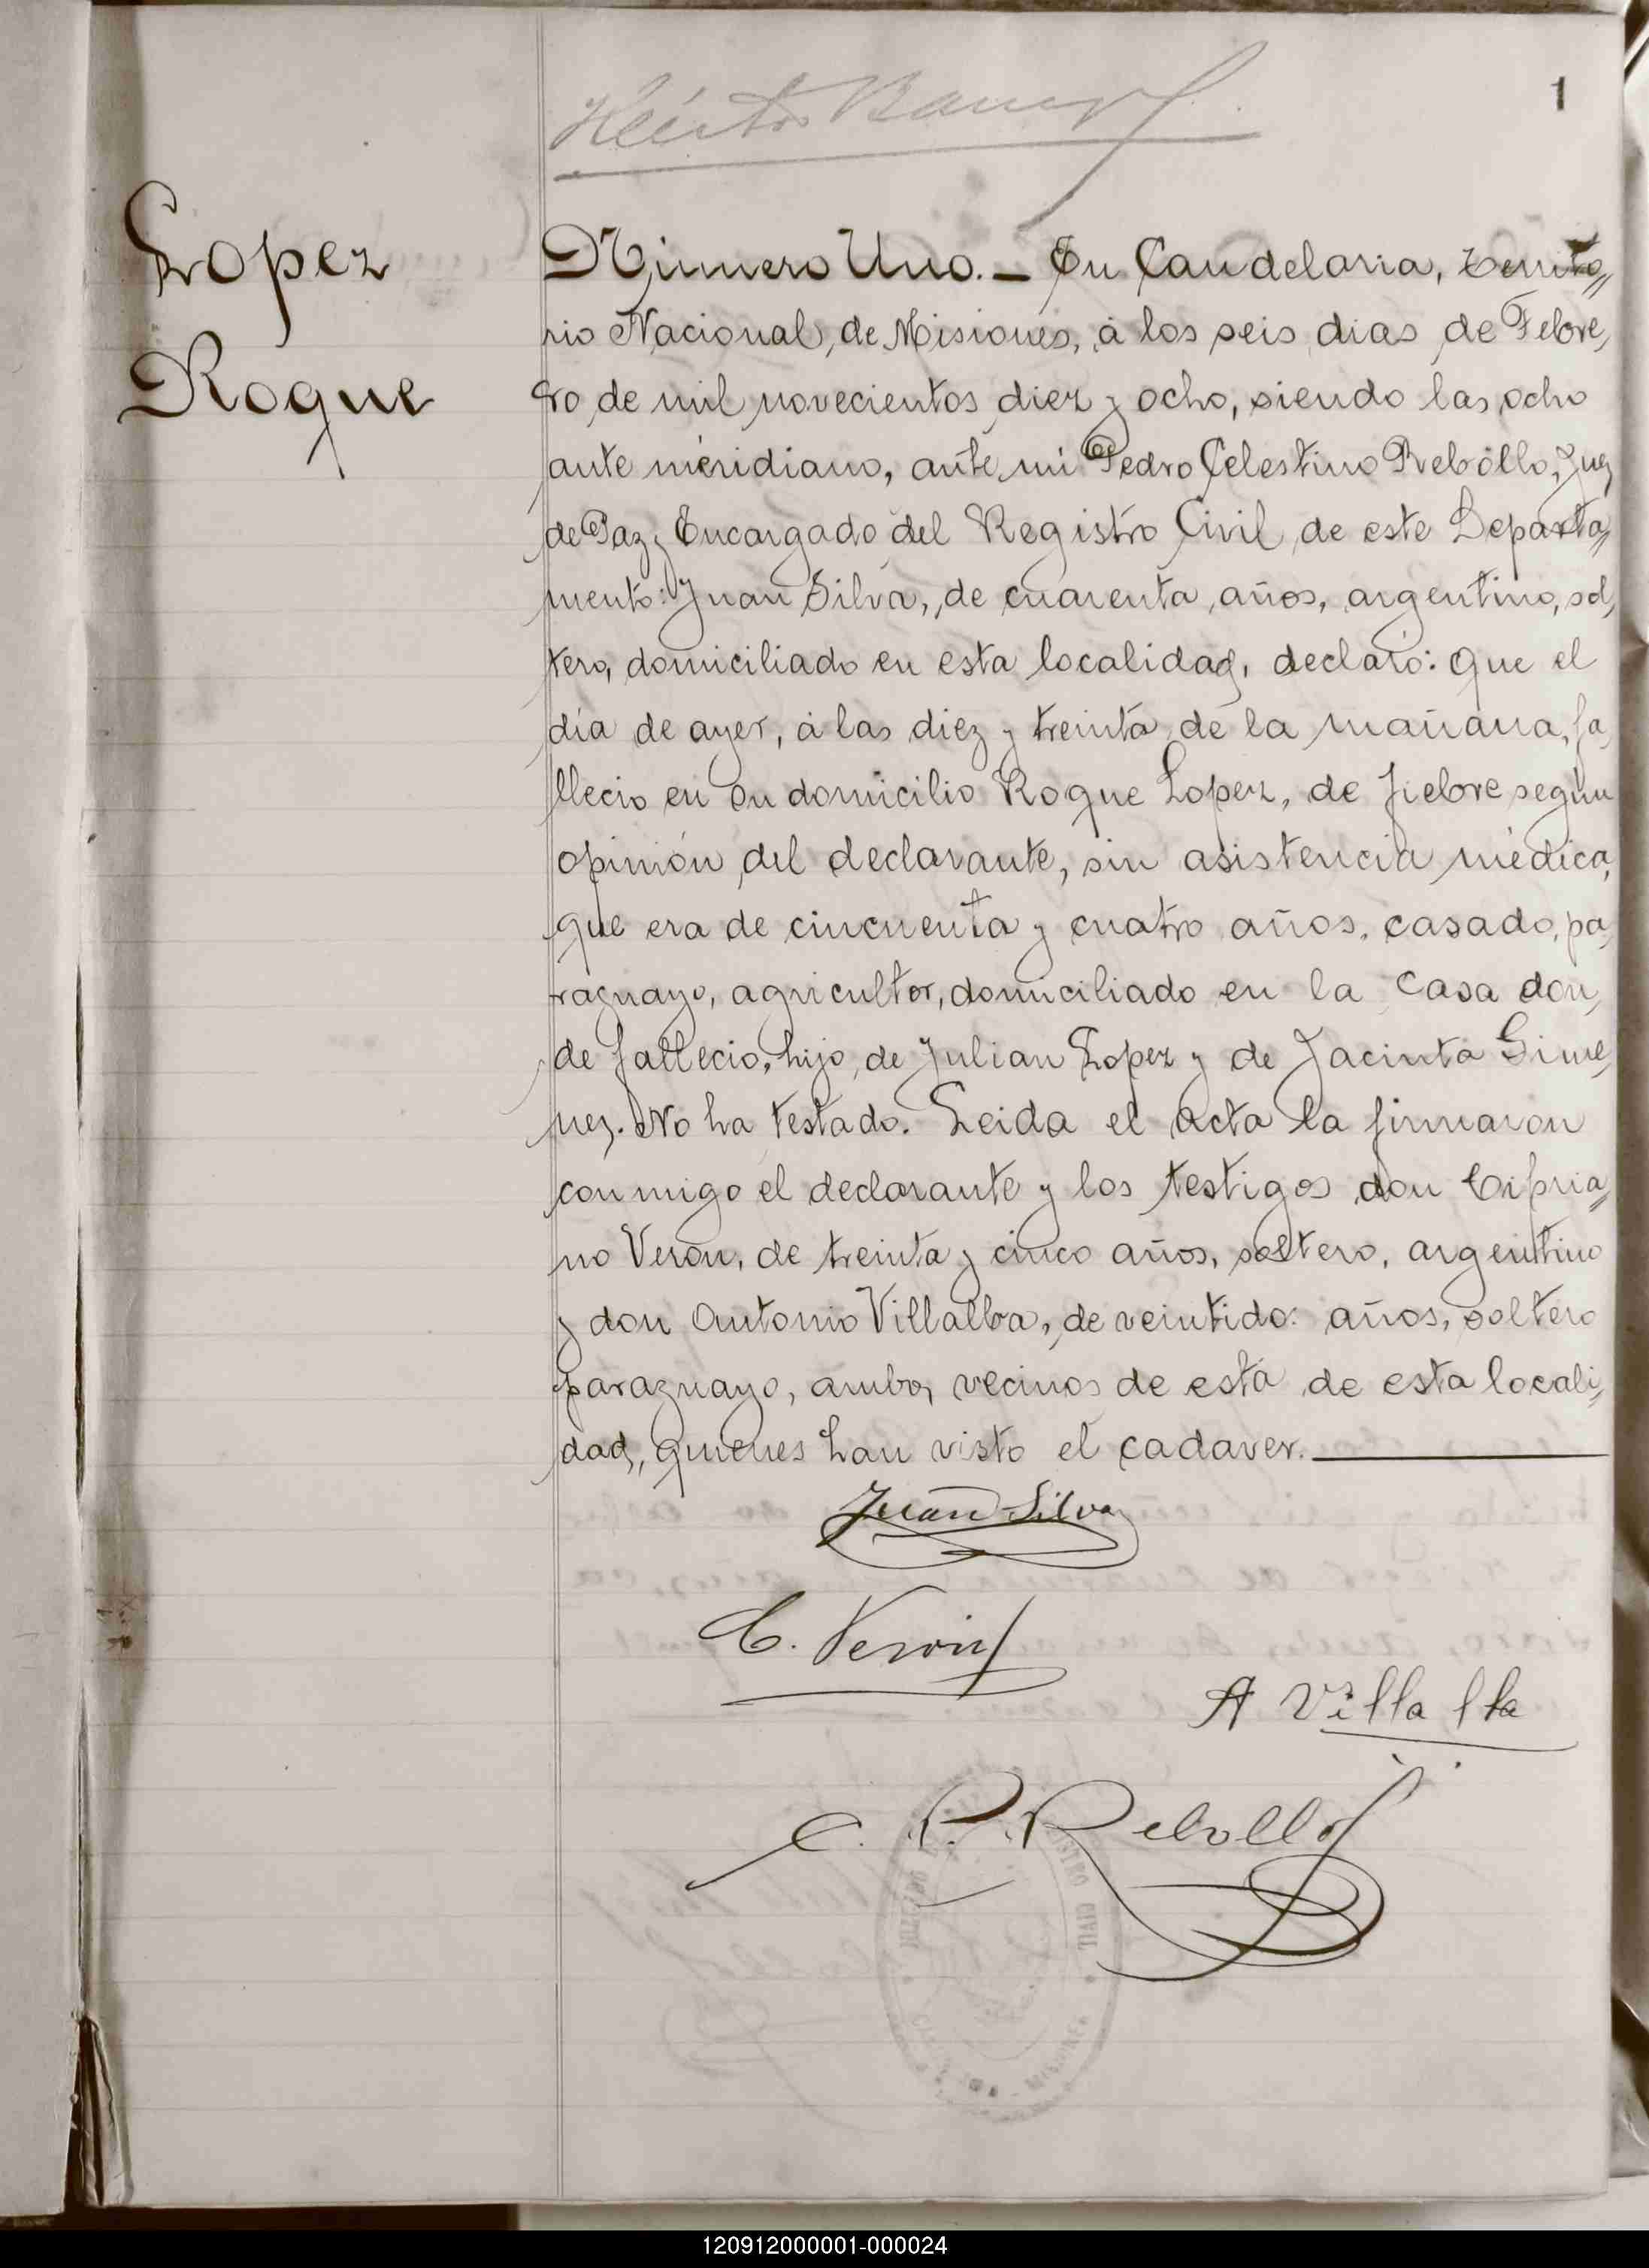 Héctor
1
Lopez
Roque
Número Uno. _ En Candelaria, Territo,,
rio Nacional, de Misiones, á los seis dias de Febre,
ro de mil novecientos diez y ocho, siendo las ocho
ante méridiano, ante mi Pedro Celestino Rebóllo, Juez
de Paz y Encargado del Registro Civil de este Departa,,
mento: Juan Silva, de cuarenta años, argentino, sol,
tero, domiciliado en esta localidad, declaró: Que el
día de ayer, á las diez y treinta de la mañana, fa,
llecio en su domicilio Roque Lopez, de fiebre según
opinión del declarante, sin asistencia médica,
que era de cincuenta y cuatro años, casado, pa,
raguayo, agricultor, domiciliado en la casa don,
de fallecio, hijo de Julian Lopez y de Jacinta Gime,
nez. No ha testado. Leida el acta la firmaron
conmigo el declarante y los testigos don Cipria,,
no Verón, de treinta y cinco años, soltero, argentino
y don Antonio Villalba, de veintidos años, soltero
paraguayo, ambos vecinos de esta de esta locali,,
dad, quienes han visto el cadaver.
Juan Silva
C. Verón
A Villalba
C. P. Rebollo
REGISTRO CIVIL
MISIONES
120912000001-000024